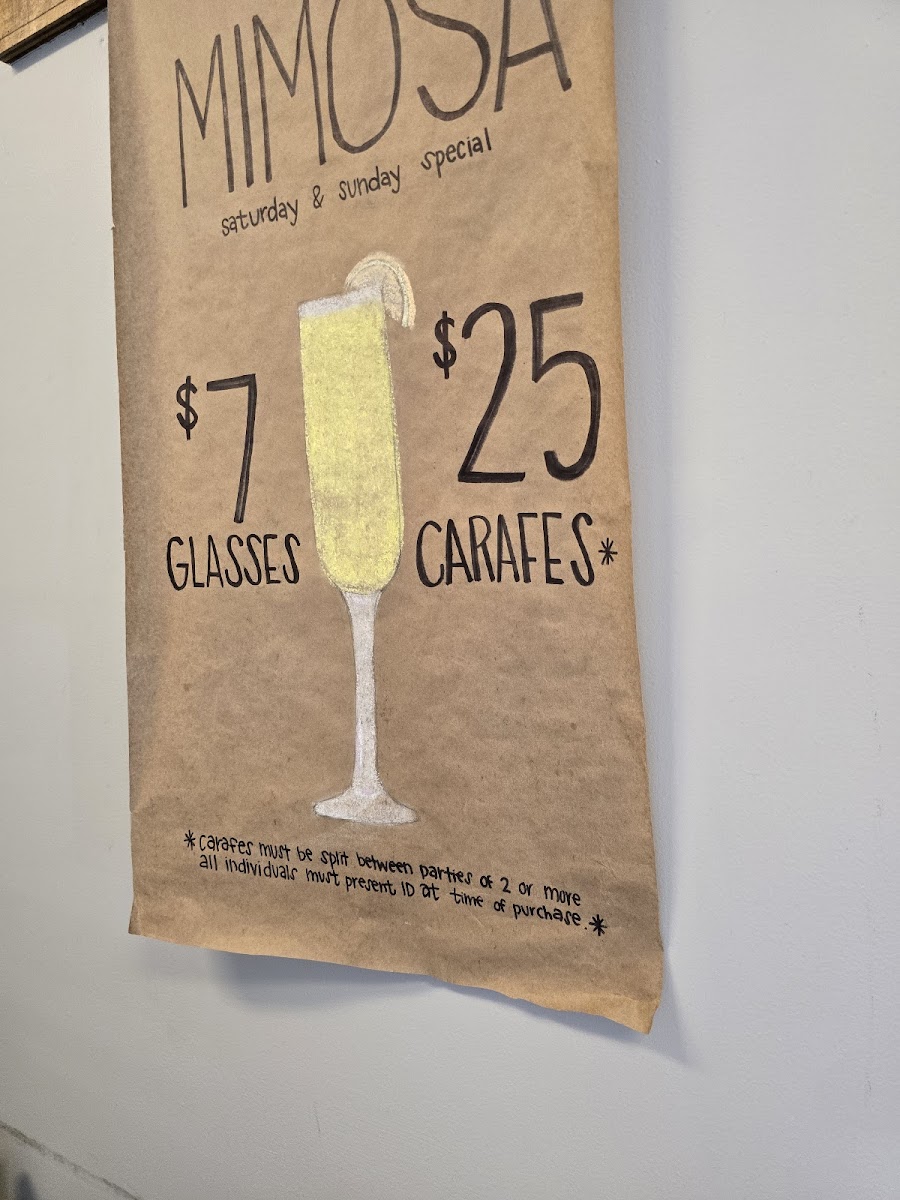 MIMOSA
saturday & sunday special
$7
GLASSES
$25
CARAFES*
*carafes must be split between parties of 2 or more
all individuals must present ID at time of purchase.*